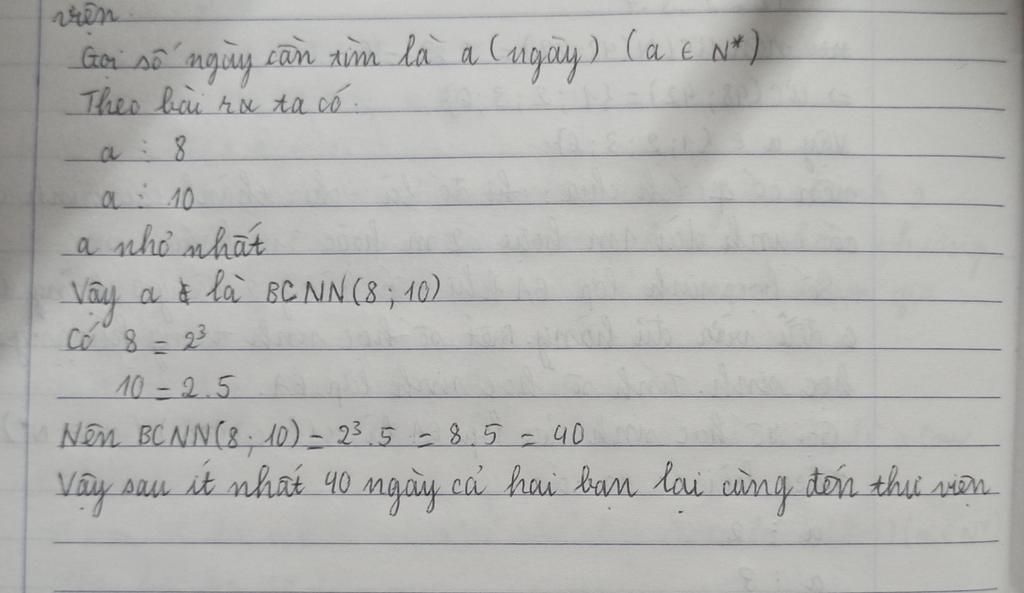 viện.
Gọi số ngày cần tìm là a (ngày) (a ∈ N*)
Theo bài ra ta có.
a ⋮ 8
a ⋮ 10
a nhỏ nhất
Vậy a là BCNN(8; 10)
Có 8 = 2³
10 = 2.5
Nên BCNN(8; 10) = 2³.5 = 8.5 = 40
Vậy sau ít nhất 40 ngày cả hai bạn lại cùng đến thư viện